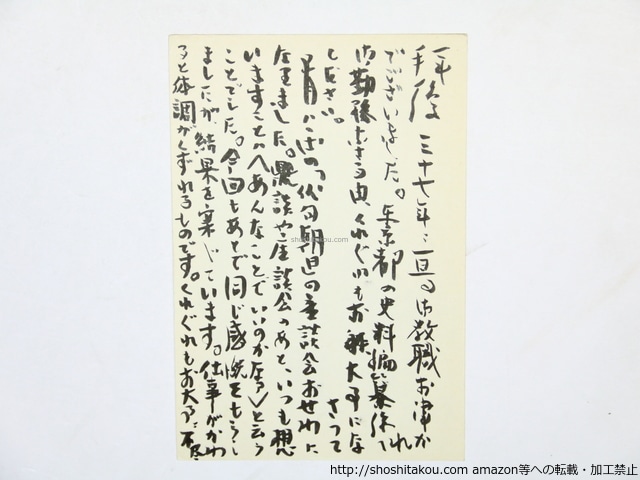 拝復 三十七年に亘る御教職お疲れ
でございました。東京都の史料編纂係に
御勤務なさる由、くれぐれもお躰大事にな
さって
ください。
「俳句朝日」の座談会お世わに
なりました。鼎談や座談会のあと、いつも想
いますことは〈あんなことでいいのかな〉と云う
ことでした。今回もあとで同じ感慨をもちし
ましたが、結果を案じています。仕事がかわ
ると体調がくずれるものです。くれぐれもお大事に 不尽
shoshitakou.com
http://shoshitakou.com amazon等への転載・加工禁止